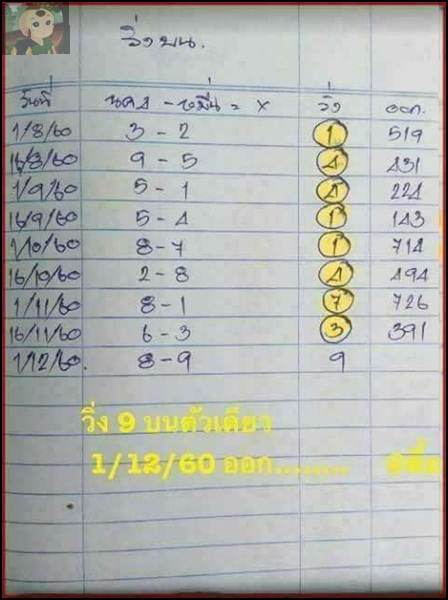 วิ่งบน.
วันที่ นคร - หมื่น = x วิ่ง ออก.
1/8/60 3 - 2 1 519
16/8/60 9 - 5 4 431
1/9/60 5 - 1 4 224
16/9/60 5 - 4 1 143
1/10/60 8 - 7 1 714
16/10/60 2 - 8 4 494
1/11/60 8 - 1 7 726
16/11/60 6 - 3 3 391
1/12/60. 8 - 9 9
วิ่ง 9 บนตัวเดียว
1/12/60 ออก........